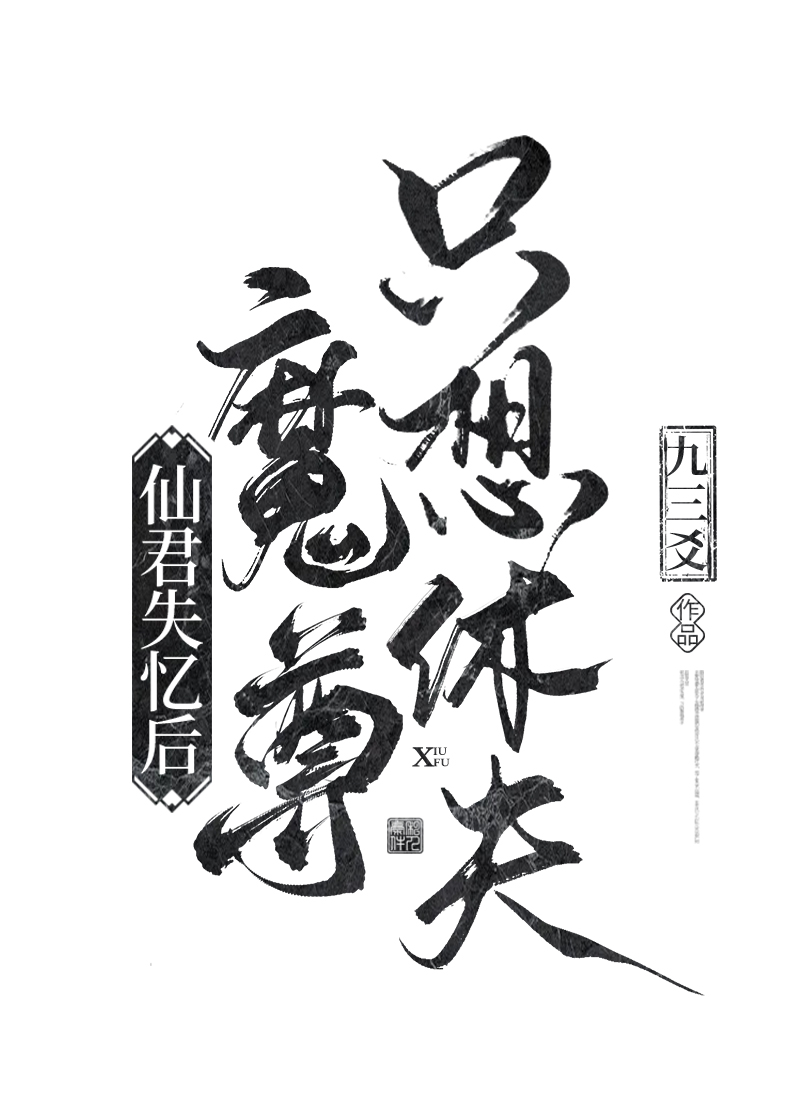 仙君失忆后
魔尊
只想休夫
XIU
FU
九三爻
作品